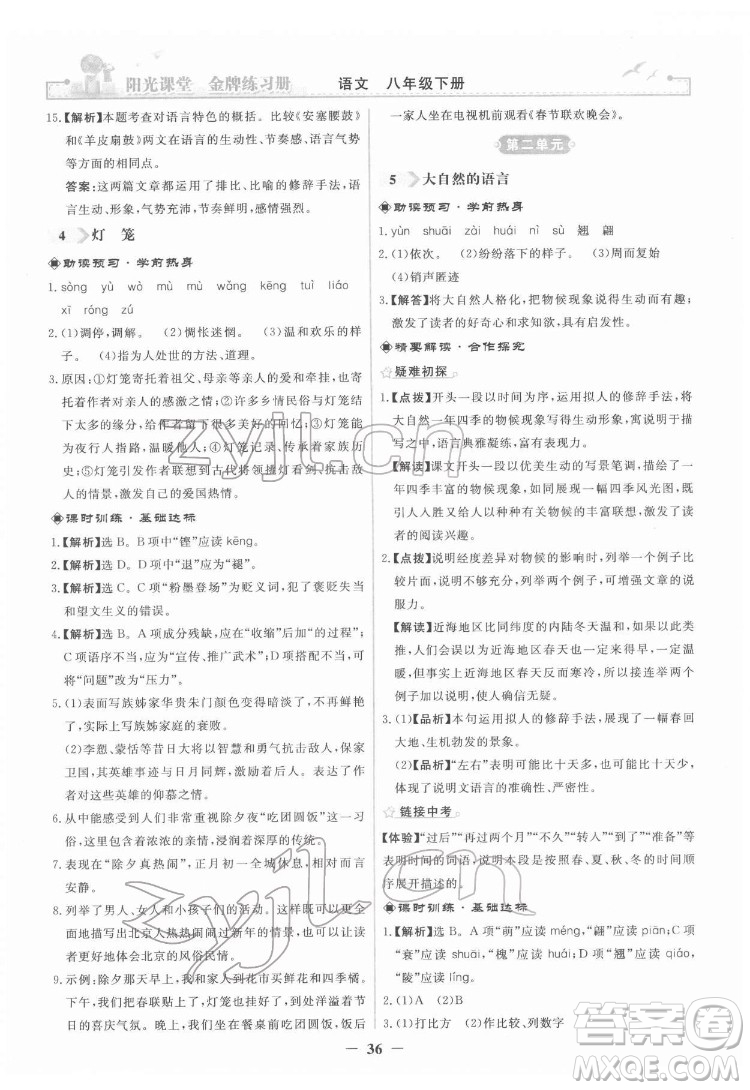 阳光课堂 金牌练习册 语文 八年级下册
15.【解析】本题考查对语言特色的概括。比较《安塞腰鼓》
和《羊皮扇鼓》两文在语言的生动性、节奏感、语言气势
等方面的异同即可。
答案:这两篇文章都运用了排比、比喻的修辞手法,语
言生动、形象,气势充沛,节奏鲜明,情感强烈。
4 灯 笼
助读预习·学前热身
1. sòng yù wò mù mù wǎng kēng tuí liáo
xī róng zú
2.(1)调停,调解。 (2)惆怅迷惘。 (3)温和欢乐的样
子。 (4)指人处世的方法、道理。
3.原因:①灯笼寄托着祖父、母亲等亲人的亲情,勾起作
者对亲人的怀念;②灯笼与许多乡情民俗与灯笼结
下太多的缘分,给乡民留下很多美好的回忆;③灯笼能
为夜行人指路,温暖他人;④灯笼能传承着家族历
史;⑤灯笼引发作者联想到古代将领挑灯看剑、抗击敌
人的情景,激发自己的爱国热情。
课时训练·基础达标
1.【解析】选 B。B 项中“铿”应读 kēng。
2.【解析】选 D。D 项“退”应为“褪”。
3.【解析】选 C。C 项“粉墨登场”为贬义词,犯了褒贬失当
和望文生义的错误。
4.【解析】选 B。A 项成分残缺,应在“收缩”后加“的过程”;
C 项语序不当,应为“宣传、推广武术”;D 项搭配不当,可
将“问题”改为“压力”。
5.(1)表面写族姊家华贵朱门颜色变得暗淡了一些,不再那
么鲜艳,实际上写族姊家庭的衰败。
(2)李愬、蒙恬等昔日大将以智慧和勇武击退敌人、保家
卫国,其英雄事迹已与日月同辉,表达了作者对英雄人
物的仰慕之情。
6.从中能感受到人们非常重视除夕夜“吃团圆饭”这一习
俗,其中包含着浓浓的亲情,浸润着深厚的亲情文化。
7.表现在“除夕真热闹”,与腊月初一全城休息,相对
安静。
8.列举了男人、女人和小孩子们的不同活动,更全
面地描写出北京人热热闹闹过新年的情景,生动
地描写出北京的风俗民情。
9.示例:除夕那天早上,我们一家到花市买鲜花和四季橘。
下午,我们把春联贴上了,灯笼也挂起来了,到处是春节
的喜庆气氛。晚上,一家人坐在餐桌前吃团圆饭,饭后
一家人坐在电视机前观看《春节联欢晚会》。
第二单元
5 大自然的语言
助读预习·学前热身
1. yùn shuāi zài huái nì sù 翘 翩
2.(1)依次。 (2)纷纷落下的样子。 (3)周而复始。
(4)销声匿迹
3.【解答】将大自然人格化,把物候现象写得生动而有趣;
激发了读者的好奇心和求知欲望。
精要解读·合作探究
疑难初探
1.【点拨】开头一段以时间为序,运用拟人的修辞手法,将
大自然一年四季的物候现象寓于生动形象的描
写之中,语言典雅凝练,富有诗意。
【解读】课文开头一段以优美生动的写景笔调,描写了一
年四季的物候现象,展现出一幅幅四季风光图,既
引人入胜又为下文作了充分的铺垫,能激发读者
的阅读兴趣。
2.【点拨】说明经度差异对物候的影响,列举一个例子比
较片面,缺少说服力。列举两个例子更具有说
服力。
【解读】近海地区比同纬度的内陆冬天温和,春天反
而寒冷。如果仅举一个例子,会让人误认为是特殊现
象。两个例子表明近海地区春天反而寒冷,这样就更能
让人确信无疑。
3.(1)【品析】本句运用拟人的修辞手法,展现了一幅春回
大地、生机勃发的景象。
(2)【品析】“左右”在时间上可能比十天多,也可能比十
天少,充分说明语言的准确性、严密性。
链接中考
【体验】“过后”“再过两个月”“不久”“转入”“到了”“准备”等
表明时间的词语,这些标志性词语按照春、夏、秋、冬时间顺
序展开描述的。
课时训练·基础达标
1.【解析】选 C。A 项“萌”应读 méng,“翩”应读 piān;B 项
“衰”应读 shuāi,“槐”应读 huái;D 项“翘”应读 qiáo,
“陵”应读 líng。
2.(1)A (2)B
3.(1)打比方 (2)举例子、列数字
36
zyjl.cn
zyjl.cn
答案圈
MXQE.COM